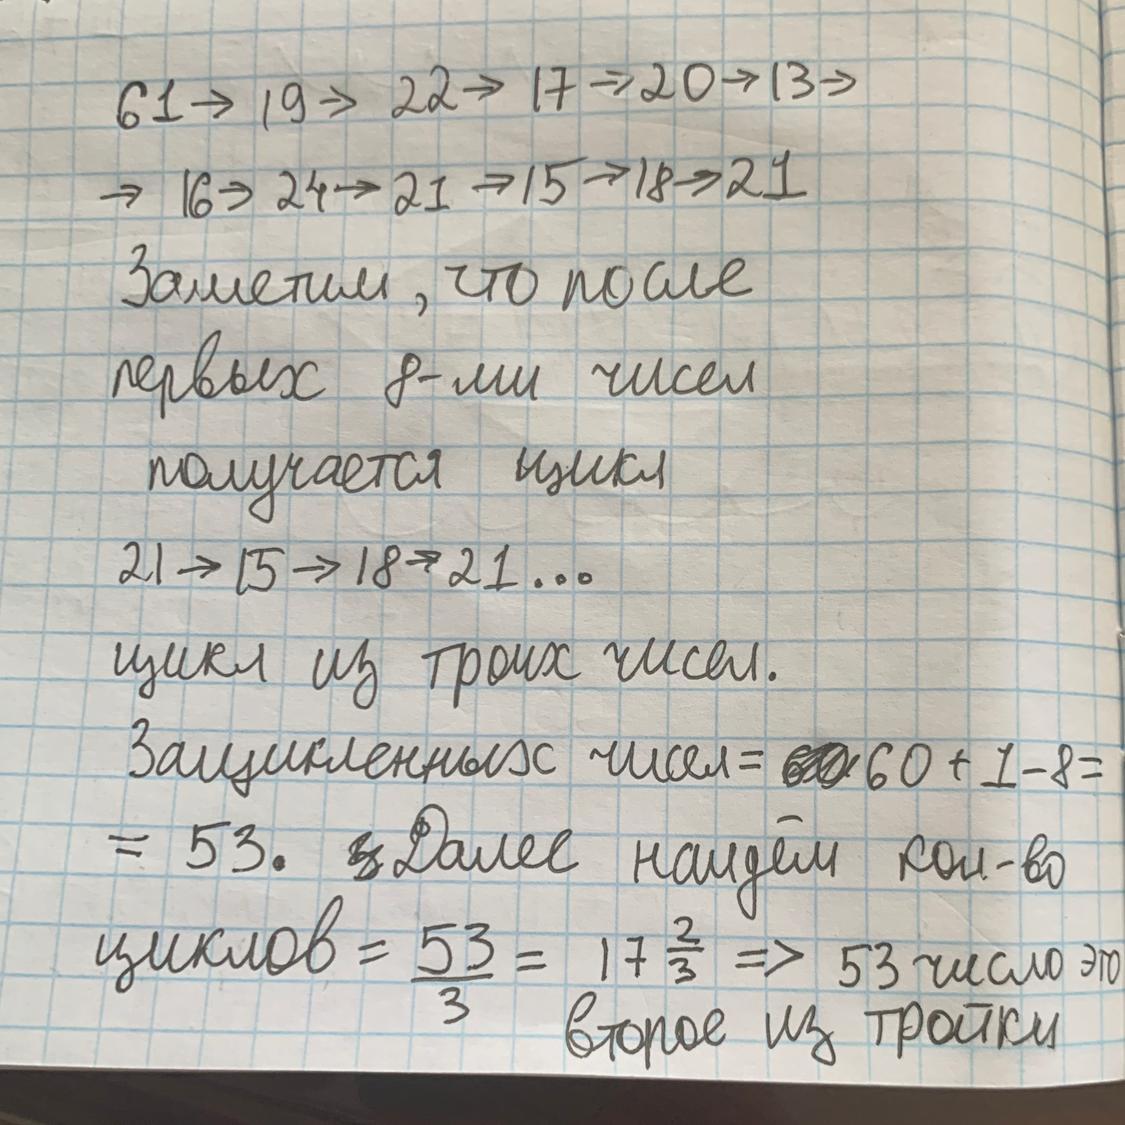 61→19→22→17→20→13→
→16→24→21→15→18→21
Заметим, что после
первых 8-ми чисел
получается цикл
21→15→18→21...
цикл из троих чисел.
Зацикленных чисел= 60+1-8=
= 53. Далее найдём кол-во
циклов = 53/3 = 17 2/3 => 53 число это
второе из тройки